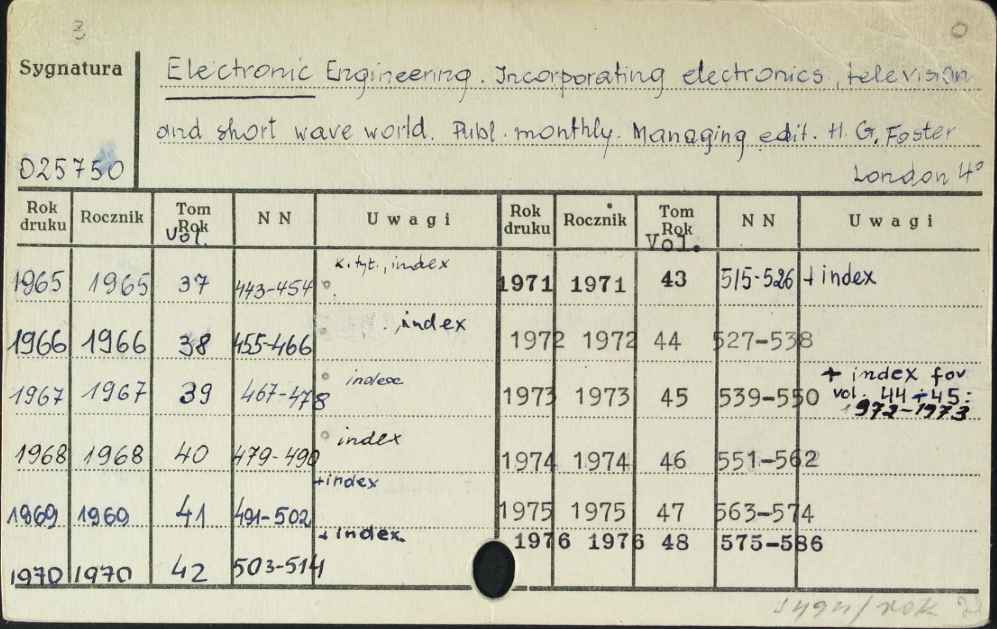 3 0
Sygnatura Electronic Engineering. Incorporating electronics, television
and short wave world. Publ. monthly. Managing edit. H. G. Foster
D25750 London 4°
Rok druku Rocznik Tom Rok Vol. N N Uwagi Rok druku Rocznik Tom Rok Vol. N N Uwagi
1965 1965 37 443-454 k. tyt., index 1971 1971 43 515-526 + index
1966 1966 38 455-466 index 1972 1972 44 527-538
1967 1967 39 467-478 index 1973 1973 45 539-550 + index for vol. 44÷45: 1972-1973
1968 1968 40 479-490 index 1974 1974 46 551-562
1969 1969 41 491-502 +index 1975 1975 47 563-574
1970 1970 42 503-514 + index 1976 1976 48 575-586